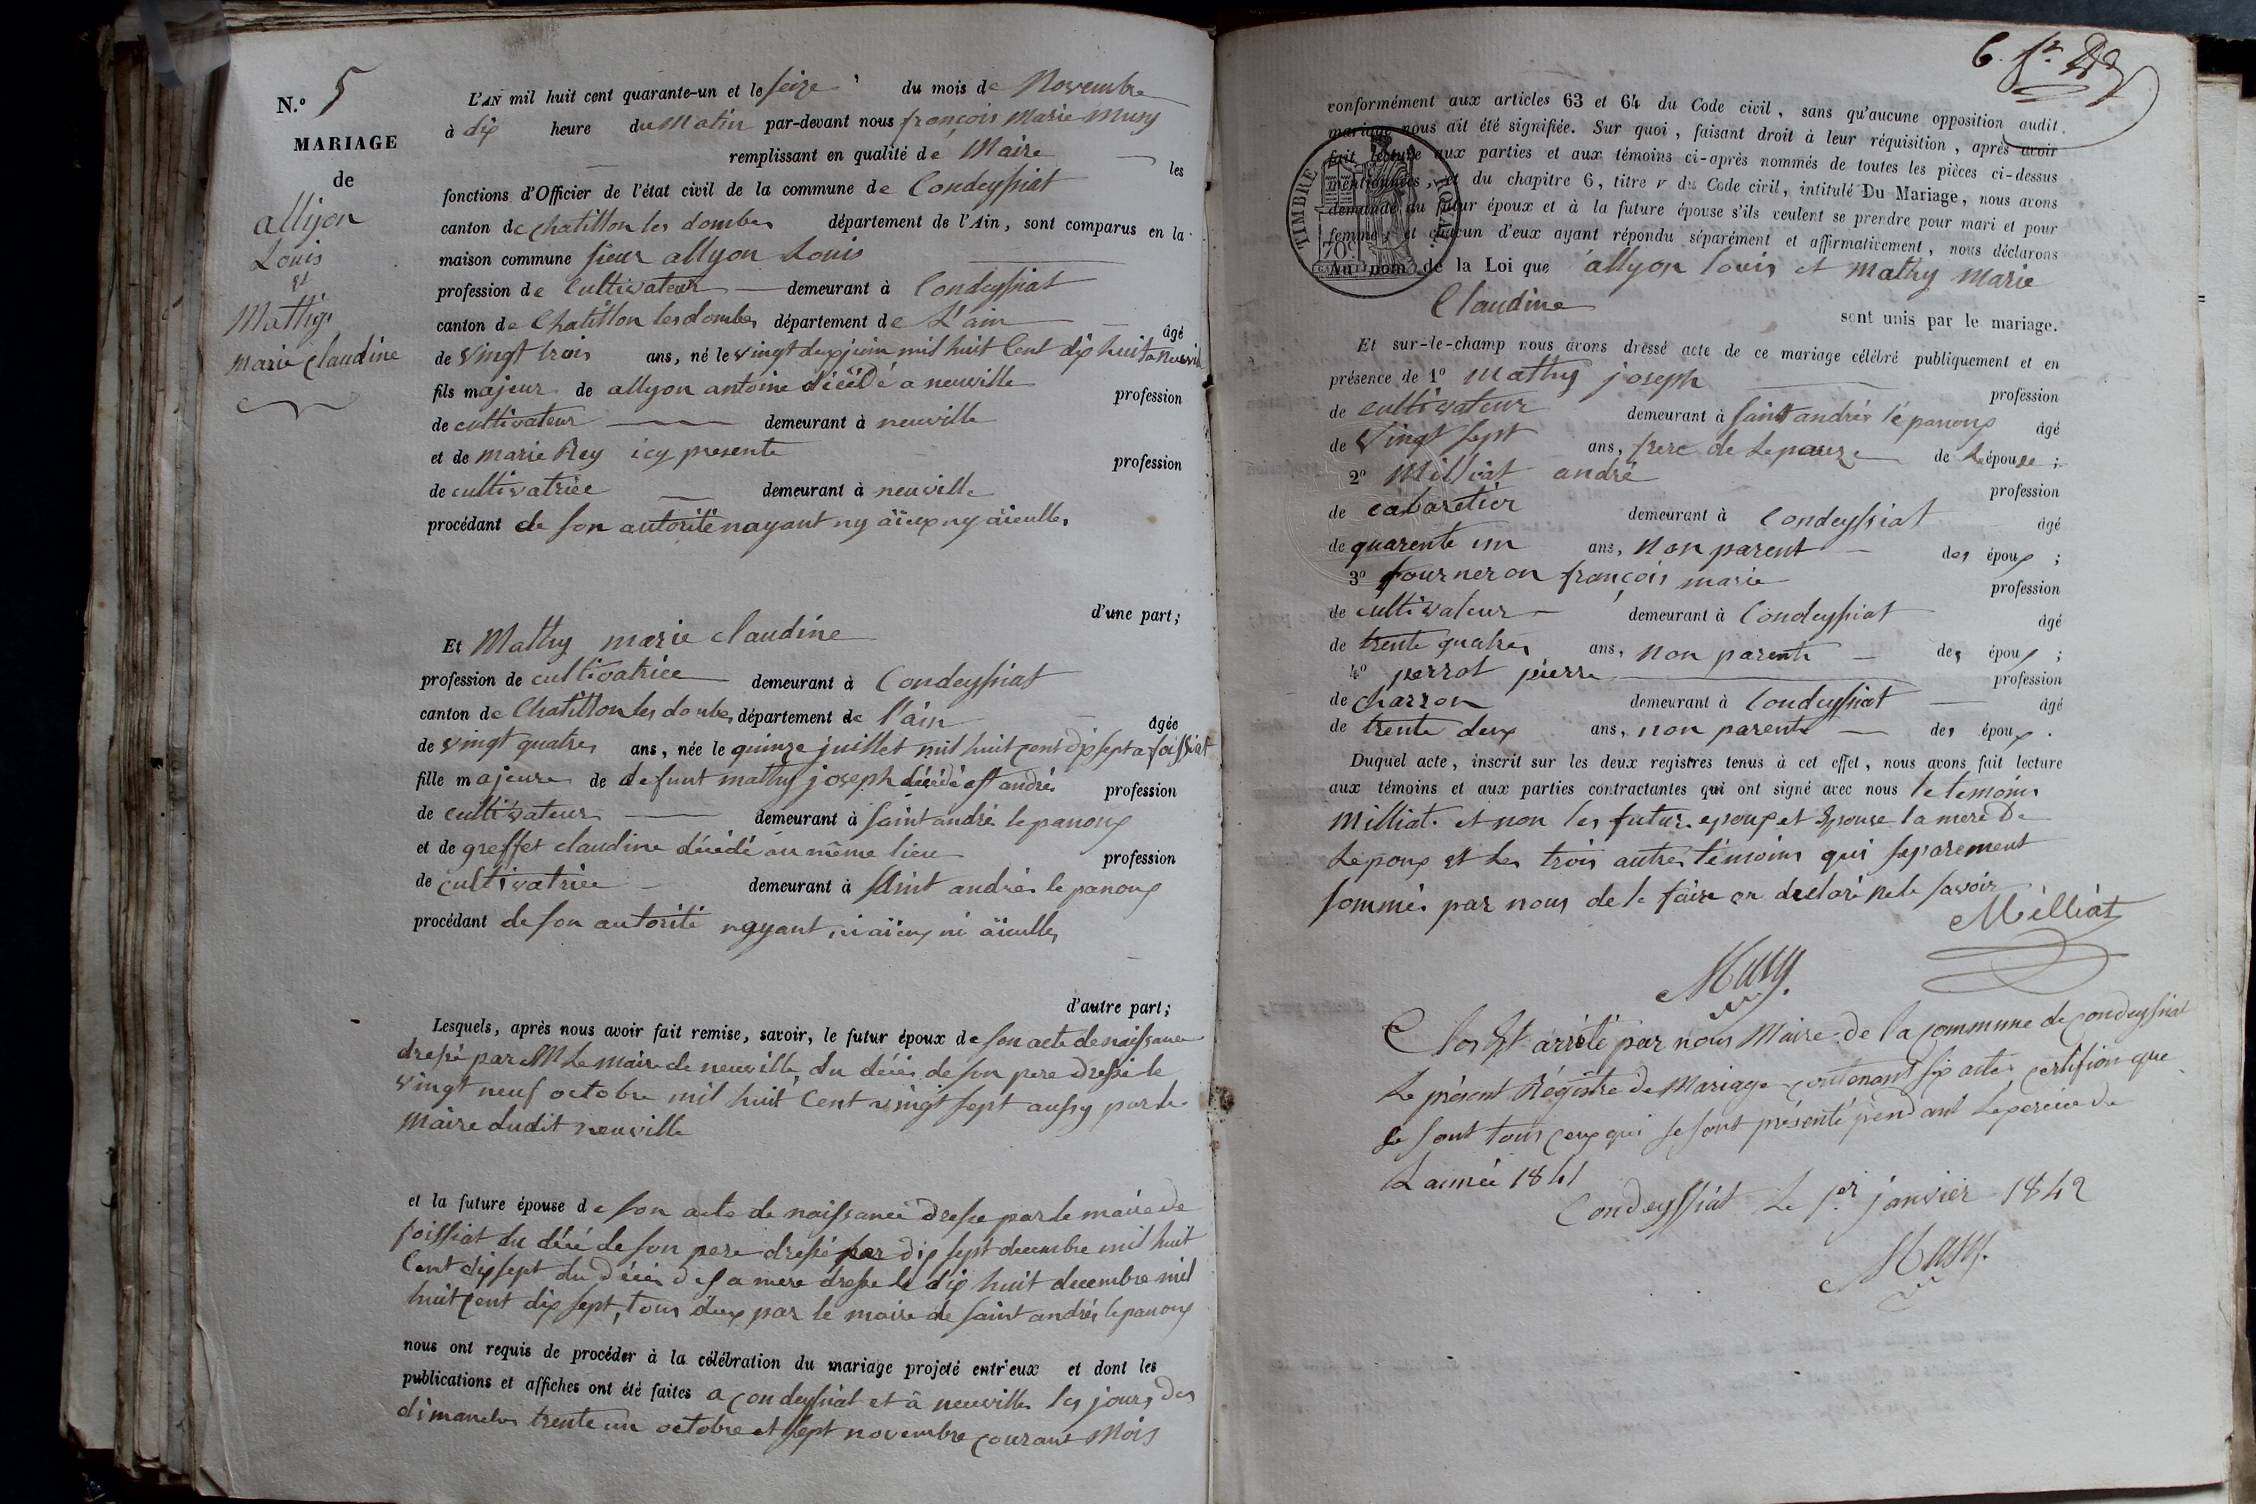 N.º 5
MARIAGE
de
allyon
Louis
et
Mathy
marie Claudine
L'AN mil huit cent quarante-un et le seize du mois de Novembre
à dix heure du Matin par-devant nous françois Marie Musy
remplissant en qualité de Maire les
fonctions d'Officier de l'état civil de la commune de Condeyssiat
canton de chatillon les dombes département de l'Ain, sont comparus en la
maison commune sieur allyon Louis
profession de Cultivateur demeurant à Condeyssiat
canton de Chatillon les dombes département de L'ain âgé
de vingt trois ans, né le vingt deux juin mil huit Cent dix huit a neuville
fils majeur de allyon antoine décédé a neuville profession
de cultivateur demeurant à neuville
et de marie Rey icy presente profession
de cultivatriée demeurant à neuville
procédant de son autorité nayant ny äieux ny äieulles
d'une part;
Et Mathy marie claudine
profession de cultivatriee demeurant à Condeyssiat
canton de Chatillon les dombes département de l'ain âgée
de vingt quatres ans, née le quinze juillet mil huit cent dix sept a foissiat
fille majeure de defunt mathy joseph décédé a st andrés profession
de cultivateur demeurant à saint andré le panoux
et de greffet claudine décédé au même lieu profession
de cultivatriee demeurant à saint andrés le panoux
procédant de son autorité nayant ni äieux ni äieulles
d'autre part;
Lesquels, après nous avoir fait remise, savoir, le futur époux de son acte de naissance
dressé par M Le maire de neuville, du décés de son pere dressé le
vingt neuf octobre mil huit Cent vingt sept aussy par le
Maire dudit neuville
et la future épouse de son acte de naissance dressé par le maire de
foissiat du décé de son pere dressé par dix sept decembre mil huit
Cent dix sept du décés de sa mere dressé le dix huit decembre mil
huit cent dix sept, tous deux par le maire de saint andrés le panoux
nous ont requis de procéder à la célébration du mariage projeté entr'eux et dont les
publications et affiches ont été faites a condeyssiat et à neuville les jours des
dimanches trente un octobre et sept novembre courant Mois
conformément aux articles 63 et 64 du Code civil, sans qu'aucune opposition audit
mariage nous ait été signifiée. Sur quoi, faisant droit à leur réquisition, après avoir
fait lecture aux parties et aux témoins ci-après nommés de toutes les pièces ci-dessus
mentionnées, et du chapitre 6, titre v du Code civil, intitulé Du Mariage, nous avons
demandé au futur époux et à la future épouse s'ils veulent se prendre pour mari et pour
femme; et chacun d'eux ayant répondu séparément et affirmativement, nous déclarons
Au nom de la Loi que allyon louis et Mathy Marie
Claudine
sont unis par le mariage.
TIMBRE ROYAL
70
Et sur-le-champ nous avons dressé acte de ce mariage célébré publiquement et en
présence de 1º Mathy joseph profession
de cultivateur demeurant à saint andrés le panoux âgé
de vingt sept ans, frere de Lepouze de L'épouse;
2º Milliat andré profession
de cabaretier demeurant à Condeyssiat âgé
de quarente un ans, Non parent des époux;
3º fourneron françois marie profession
de cultivateur demeurant à Condeyssiat âgé
de trente quatres ans, non parents des époux;
4º perrot pierre profession
de charron demeurant à Condeyssiat âgé
de trente deux ans, non parents des époux.
Duquel acte, inscrit sur les deux registres tenus à cet effet, nous avons fait lecture
aux témoins et aux parties contractantes qui ont signé avec nous le temoins
Milliat. et non les futur epoux et Epouse la mere De
Lepoux et Les trois autres témoins qui separement
sommés par nous de le faire on declaré ne le savoir
Milliat
Musy
Clos et arrété par nous Maire de la commune de condeyssiat
Le présent Régistre de Mariage contenant six actes certifion que
se sont tous ceux qui se sont présenté pendant Lexercice de
L année 1841
Condeyssiat Le 1er janvier 1842
Musy